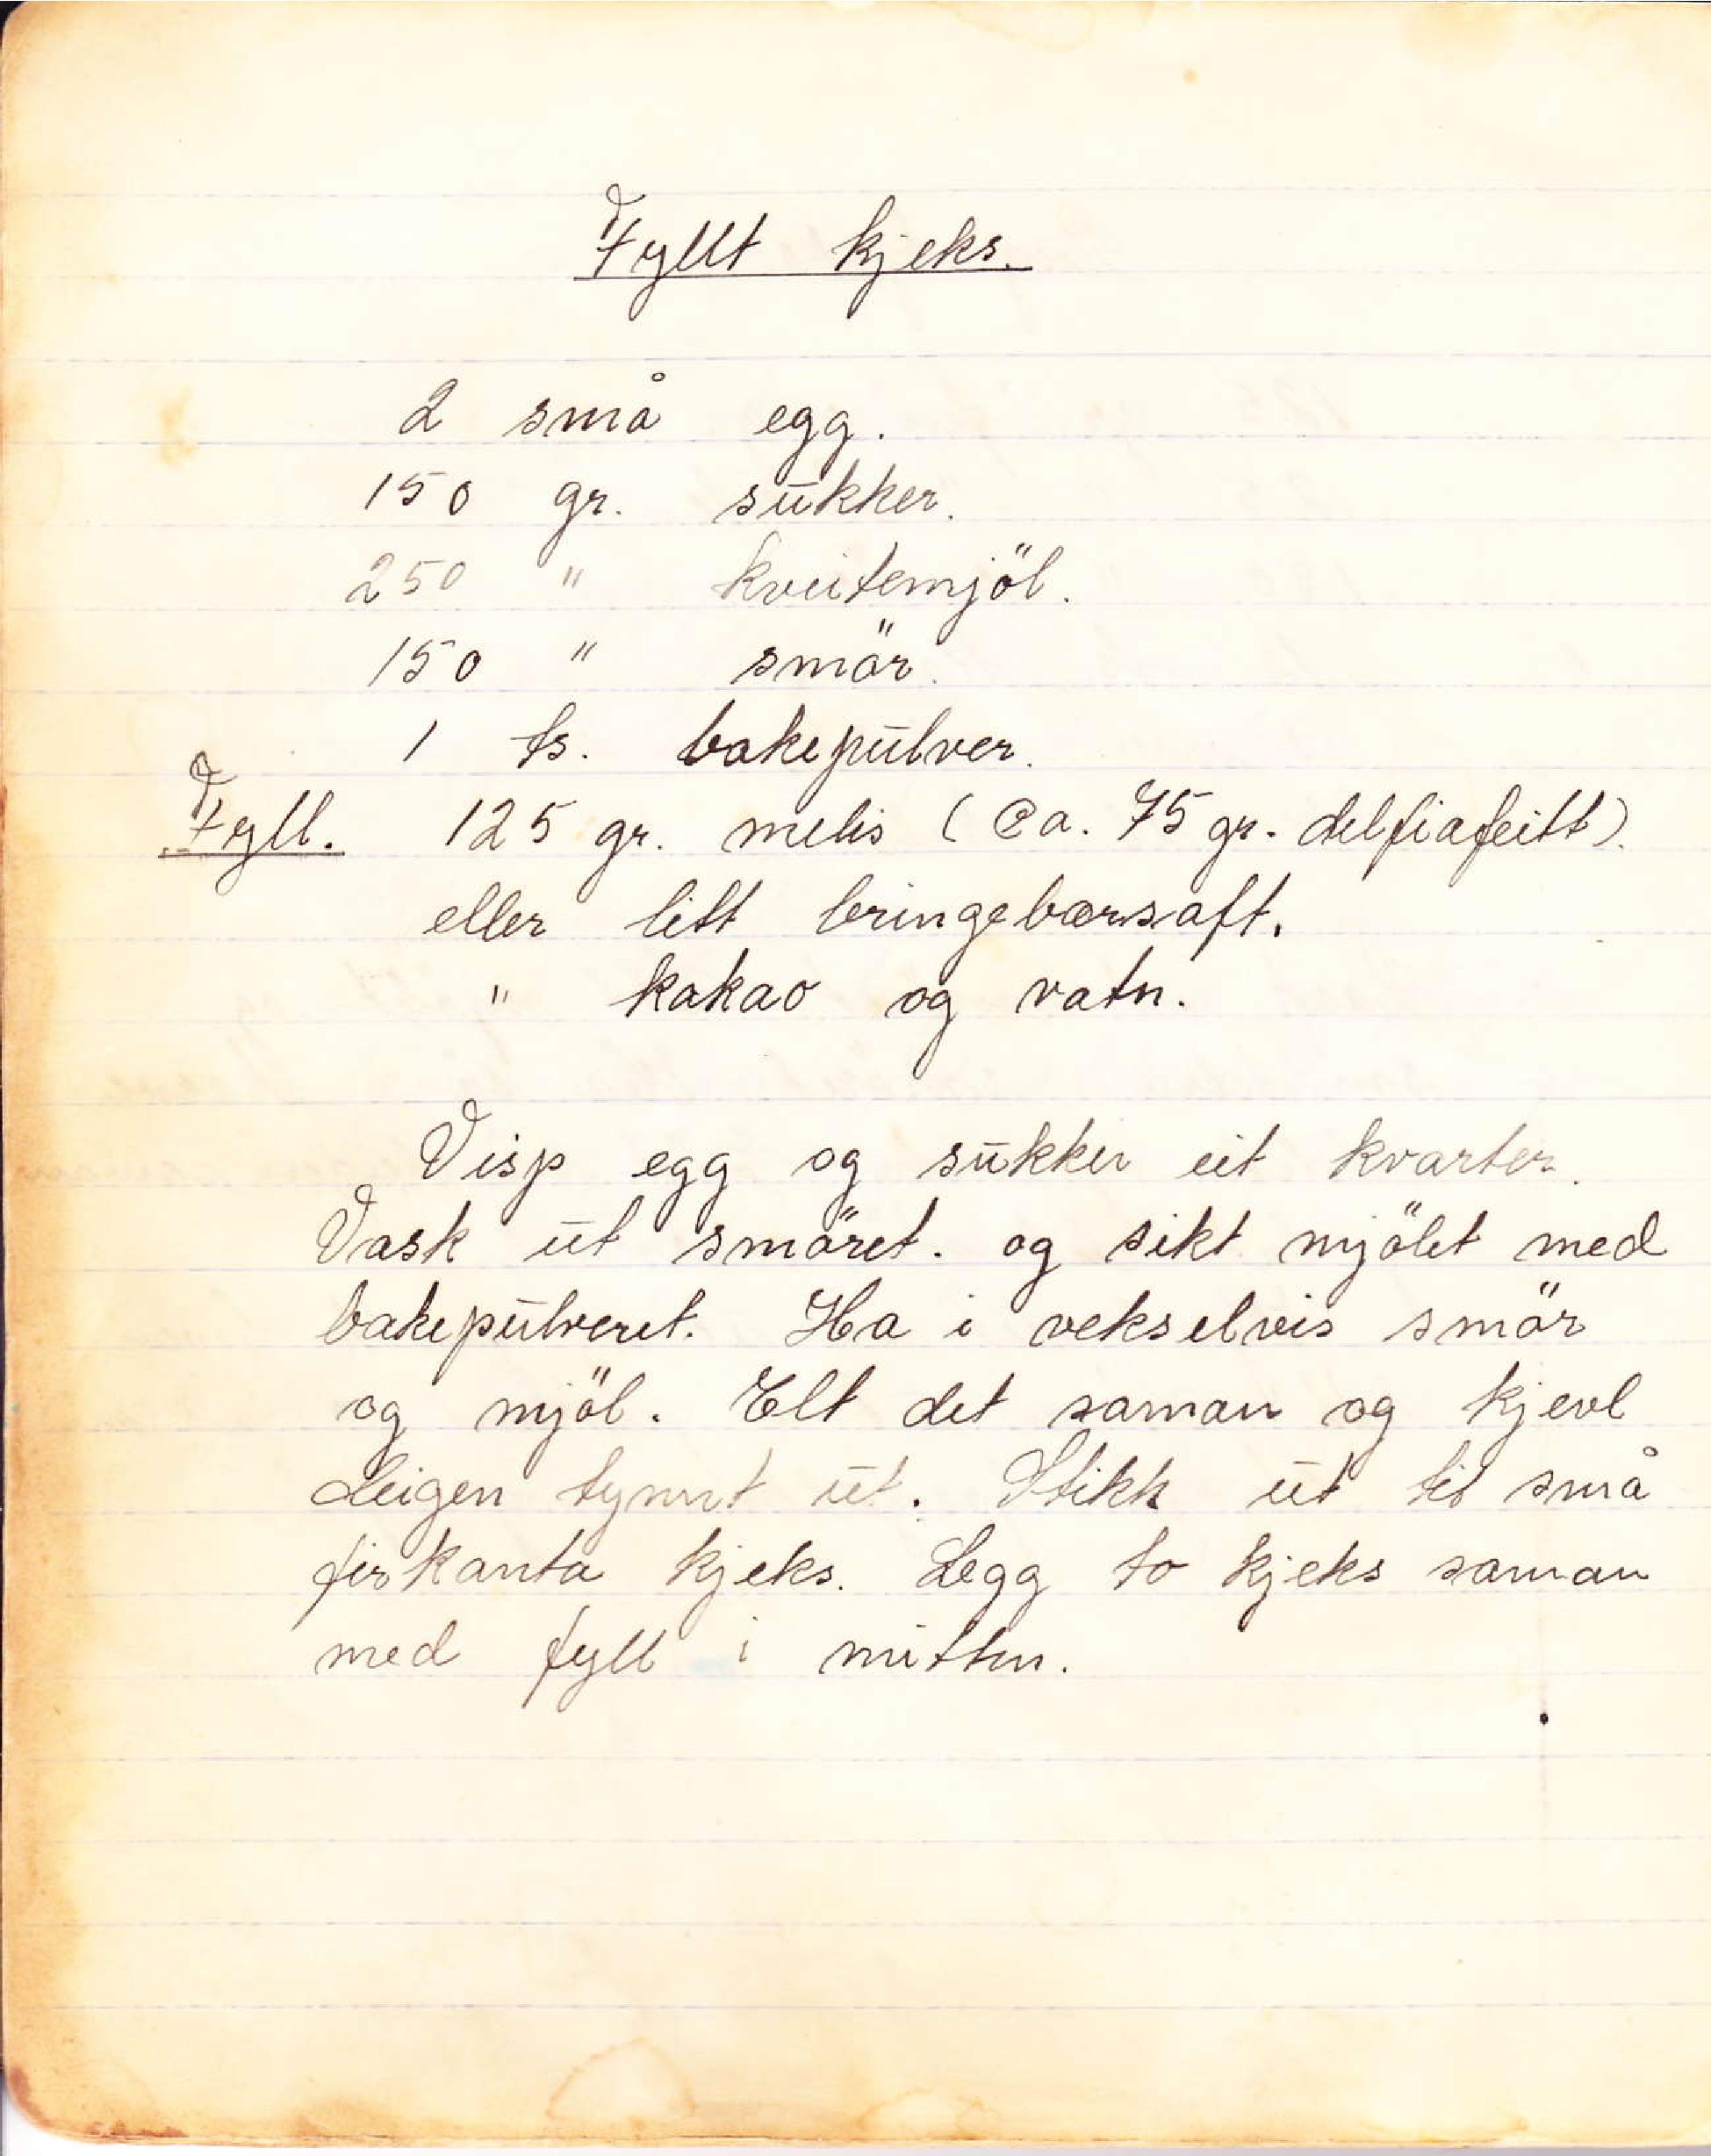 Fyllt kjeks.
2 små egg.
150 gr. sukker.
250 " kveitemjöl.
150 " smör.
1 ts. bakepulver.
Fyll. 125 gr. melis (Ca. 75 gr. delfiafeitt).
eller litt bringebærsaft.
" kakao og vatn.
Visp egg og sukker eit kvarter.
Vask ut smöret. og sikt mjölet med
bakepulveret. Ha i vekselvis smör
og mjöl. Elt det saman og kjevl
deigen tynnt ut. Stikk ut til små
firkanta kjeks. Legg to kjeks saman
med fyll i mitten.